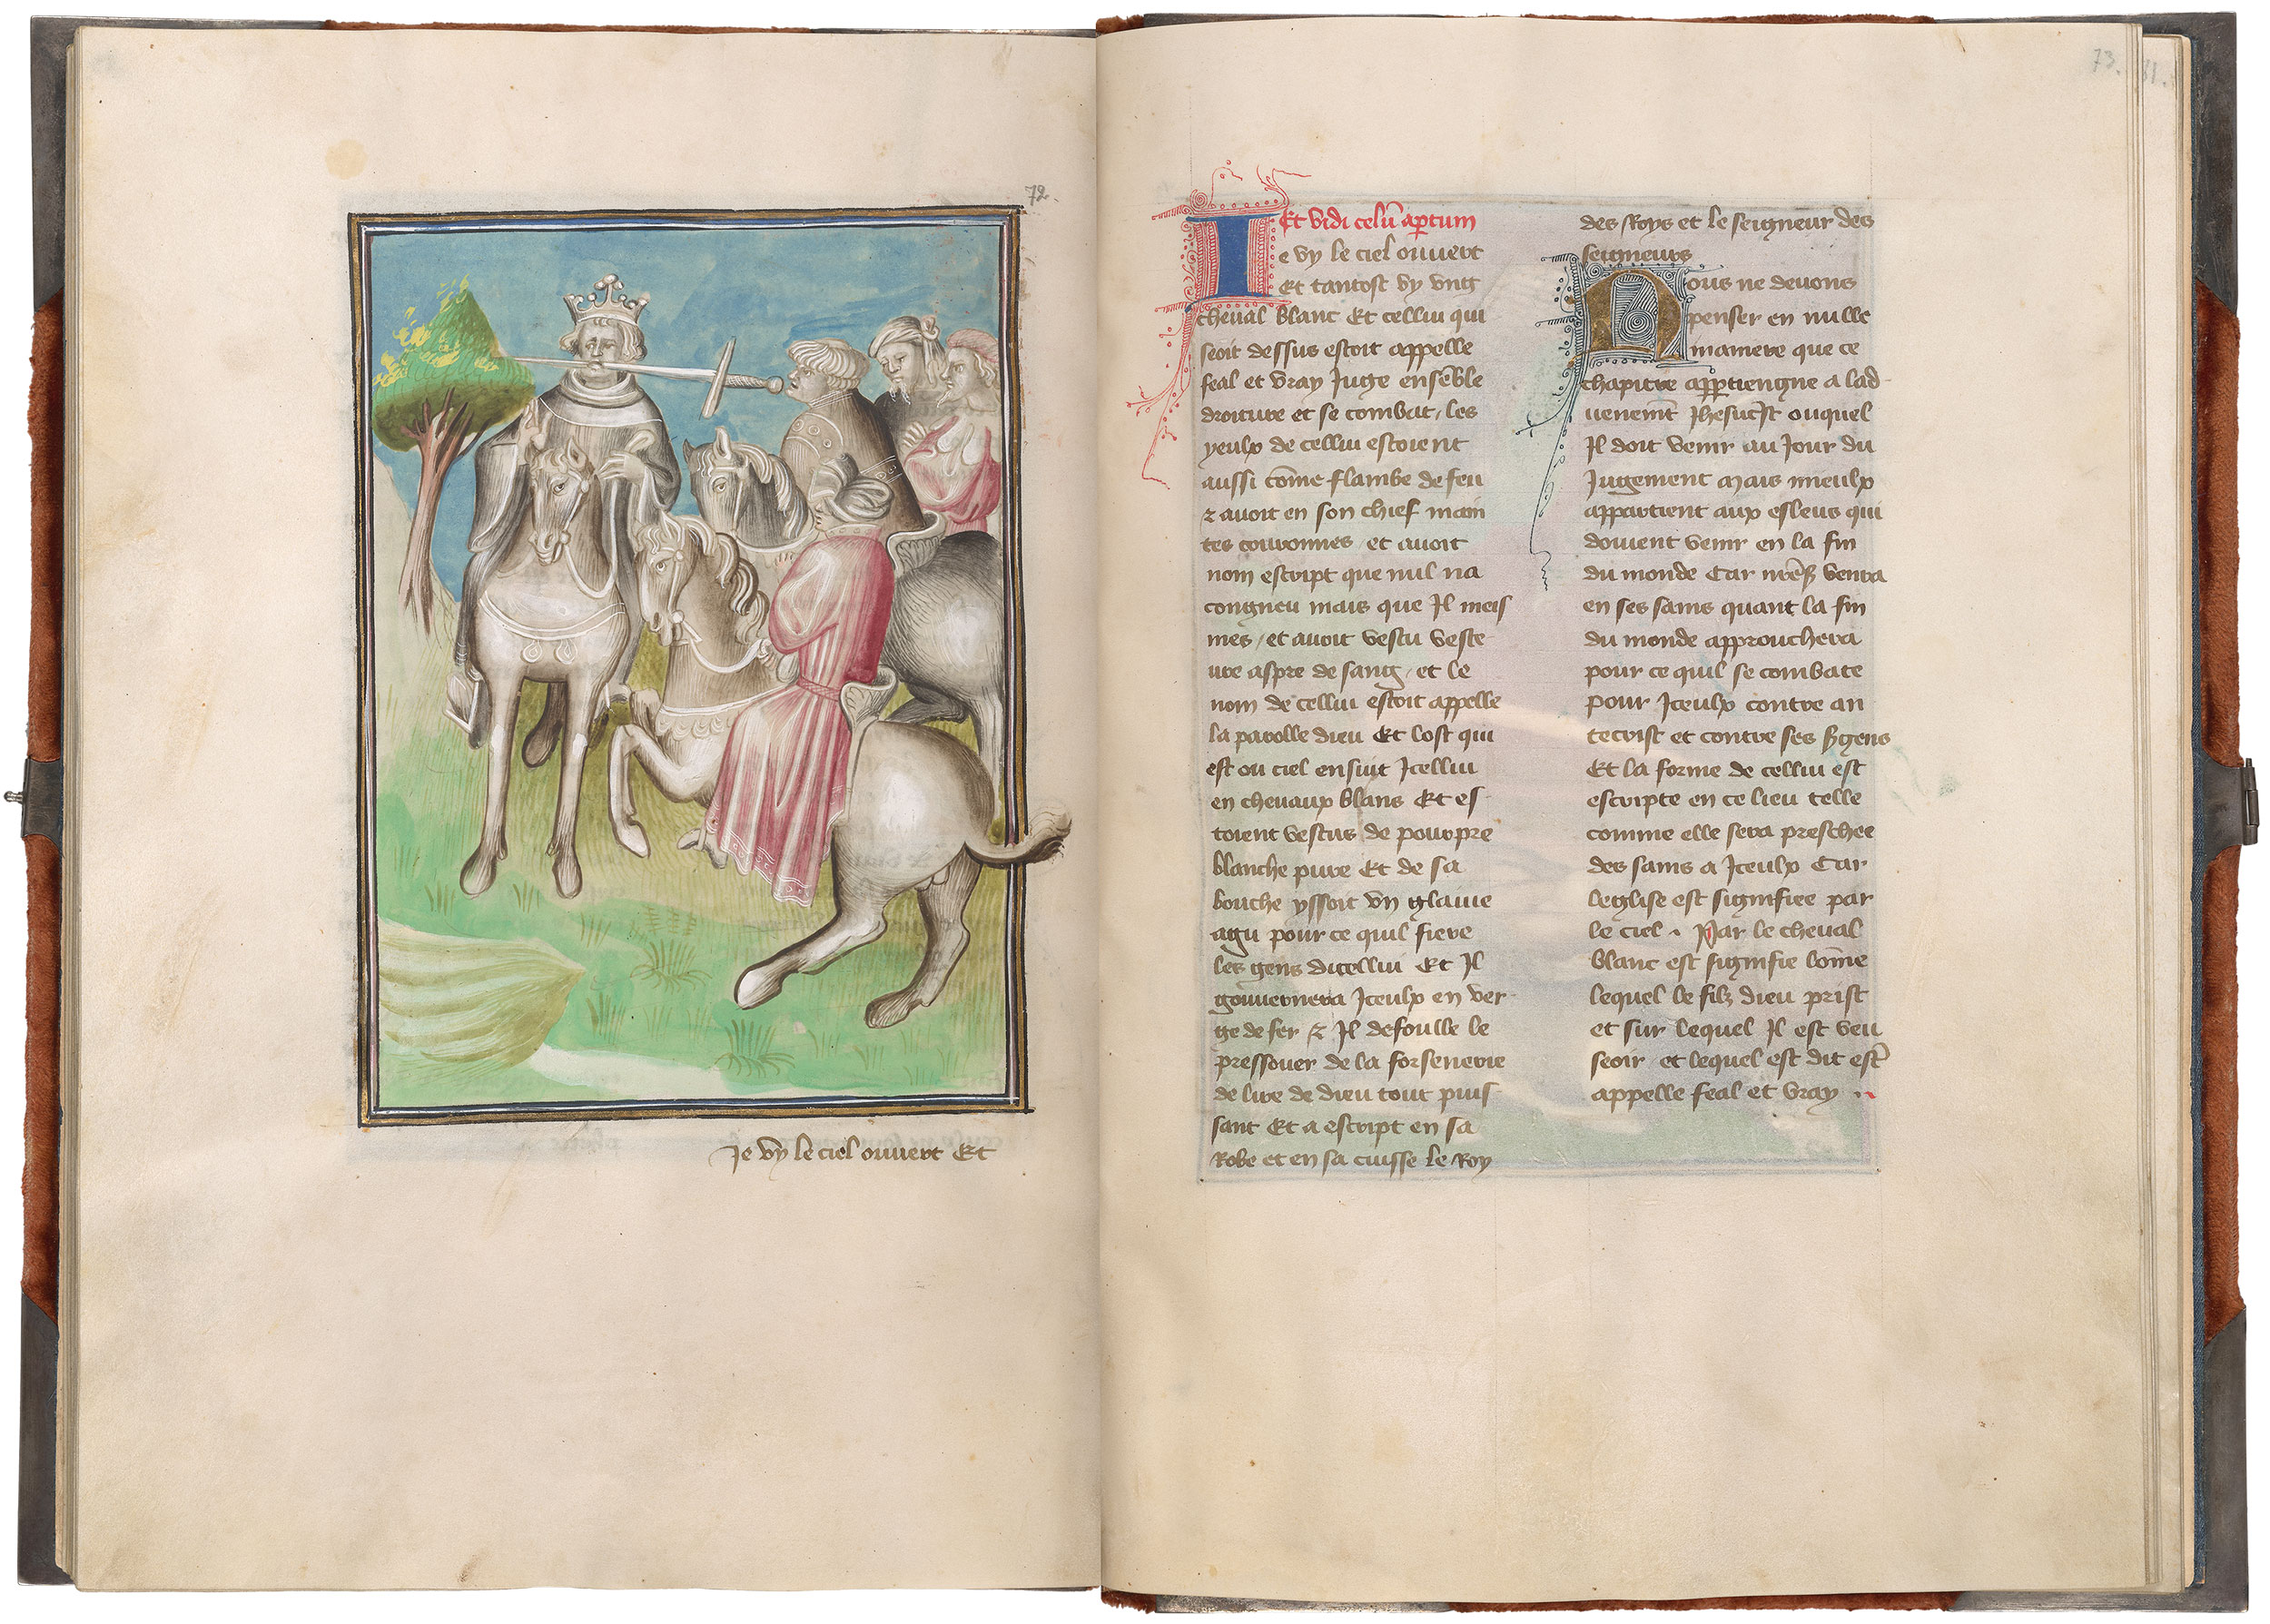 72.
Je vy le ciel ouvert Et
73.
81.
Et vidi celū aptum
Je vy le ciel ouvert
Et tantost vy ung
cheval blanc Et cellui qui
seoit dessus estoit appelle
feal et vray Juge ensēble
droiture et se combat, les
yeulx de cellui estoient
aussi cōme flambe de feu
⁊ avoit en son chief main
tes couronnes et avoit
nom escript que nul na
congneu mais que Jl meis
mes, et avoit vestu veste
ure aspre de sang, et le
nom de cellui estoit appelle
la parolle dieu Et lost qui
est ou ciel ensuit Jcellui
en chevaux blans Et es
toient vestus de pourpre
blanche pure Et de sa
bouche yssoit vn glaive
agu pour ce quil fiere
les gens dicellui Et Jl
gouvernera Jceulx en ver-
ge de fer ⁊ Jl defoulle le
pressouer de la forsenerie
de lire de dieu tout puis
sant Et a escript en sa
Robe et en sa cuisse le Roy
des Roys et le seigneur des
seigneurs
Nous ne devons
penser en nulle
maniere que ce
chapitre appertiengne a lad-
uenemēt Jhesucrist ouquel
Jl doit venir au Jour du
Jugement Mais mieulx
appartient aux esleus qui
doivent venir en la fin
du monde Car vendra
en ses sains quant la fin
du monde approuchera
pour ce quil se combate
pour Jceulx contre an
tecrist et contre ses sgens
Et la forme de cellui est
escripte en ce lieu telle
comme elle sera preschee
des sains a Jceulx Car
leglise est signifiee par
le ciel. Par le cheval
blanc est signifie lōme
lequel le filz dieu prist
et sur lequel Jl est veu
seoir et lequel est dit estr̄
appelle feal et vray